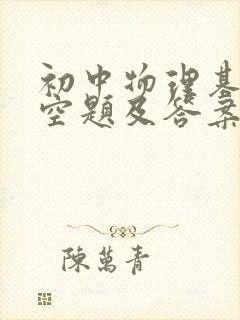 初中物理基
空题及答案
陳萬青